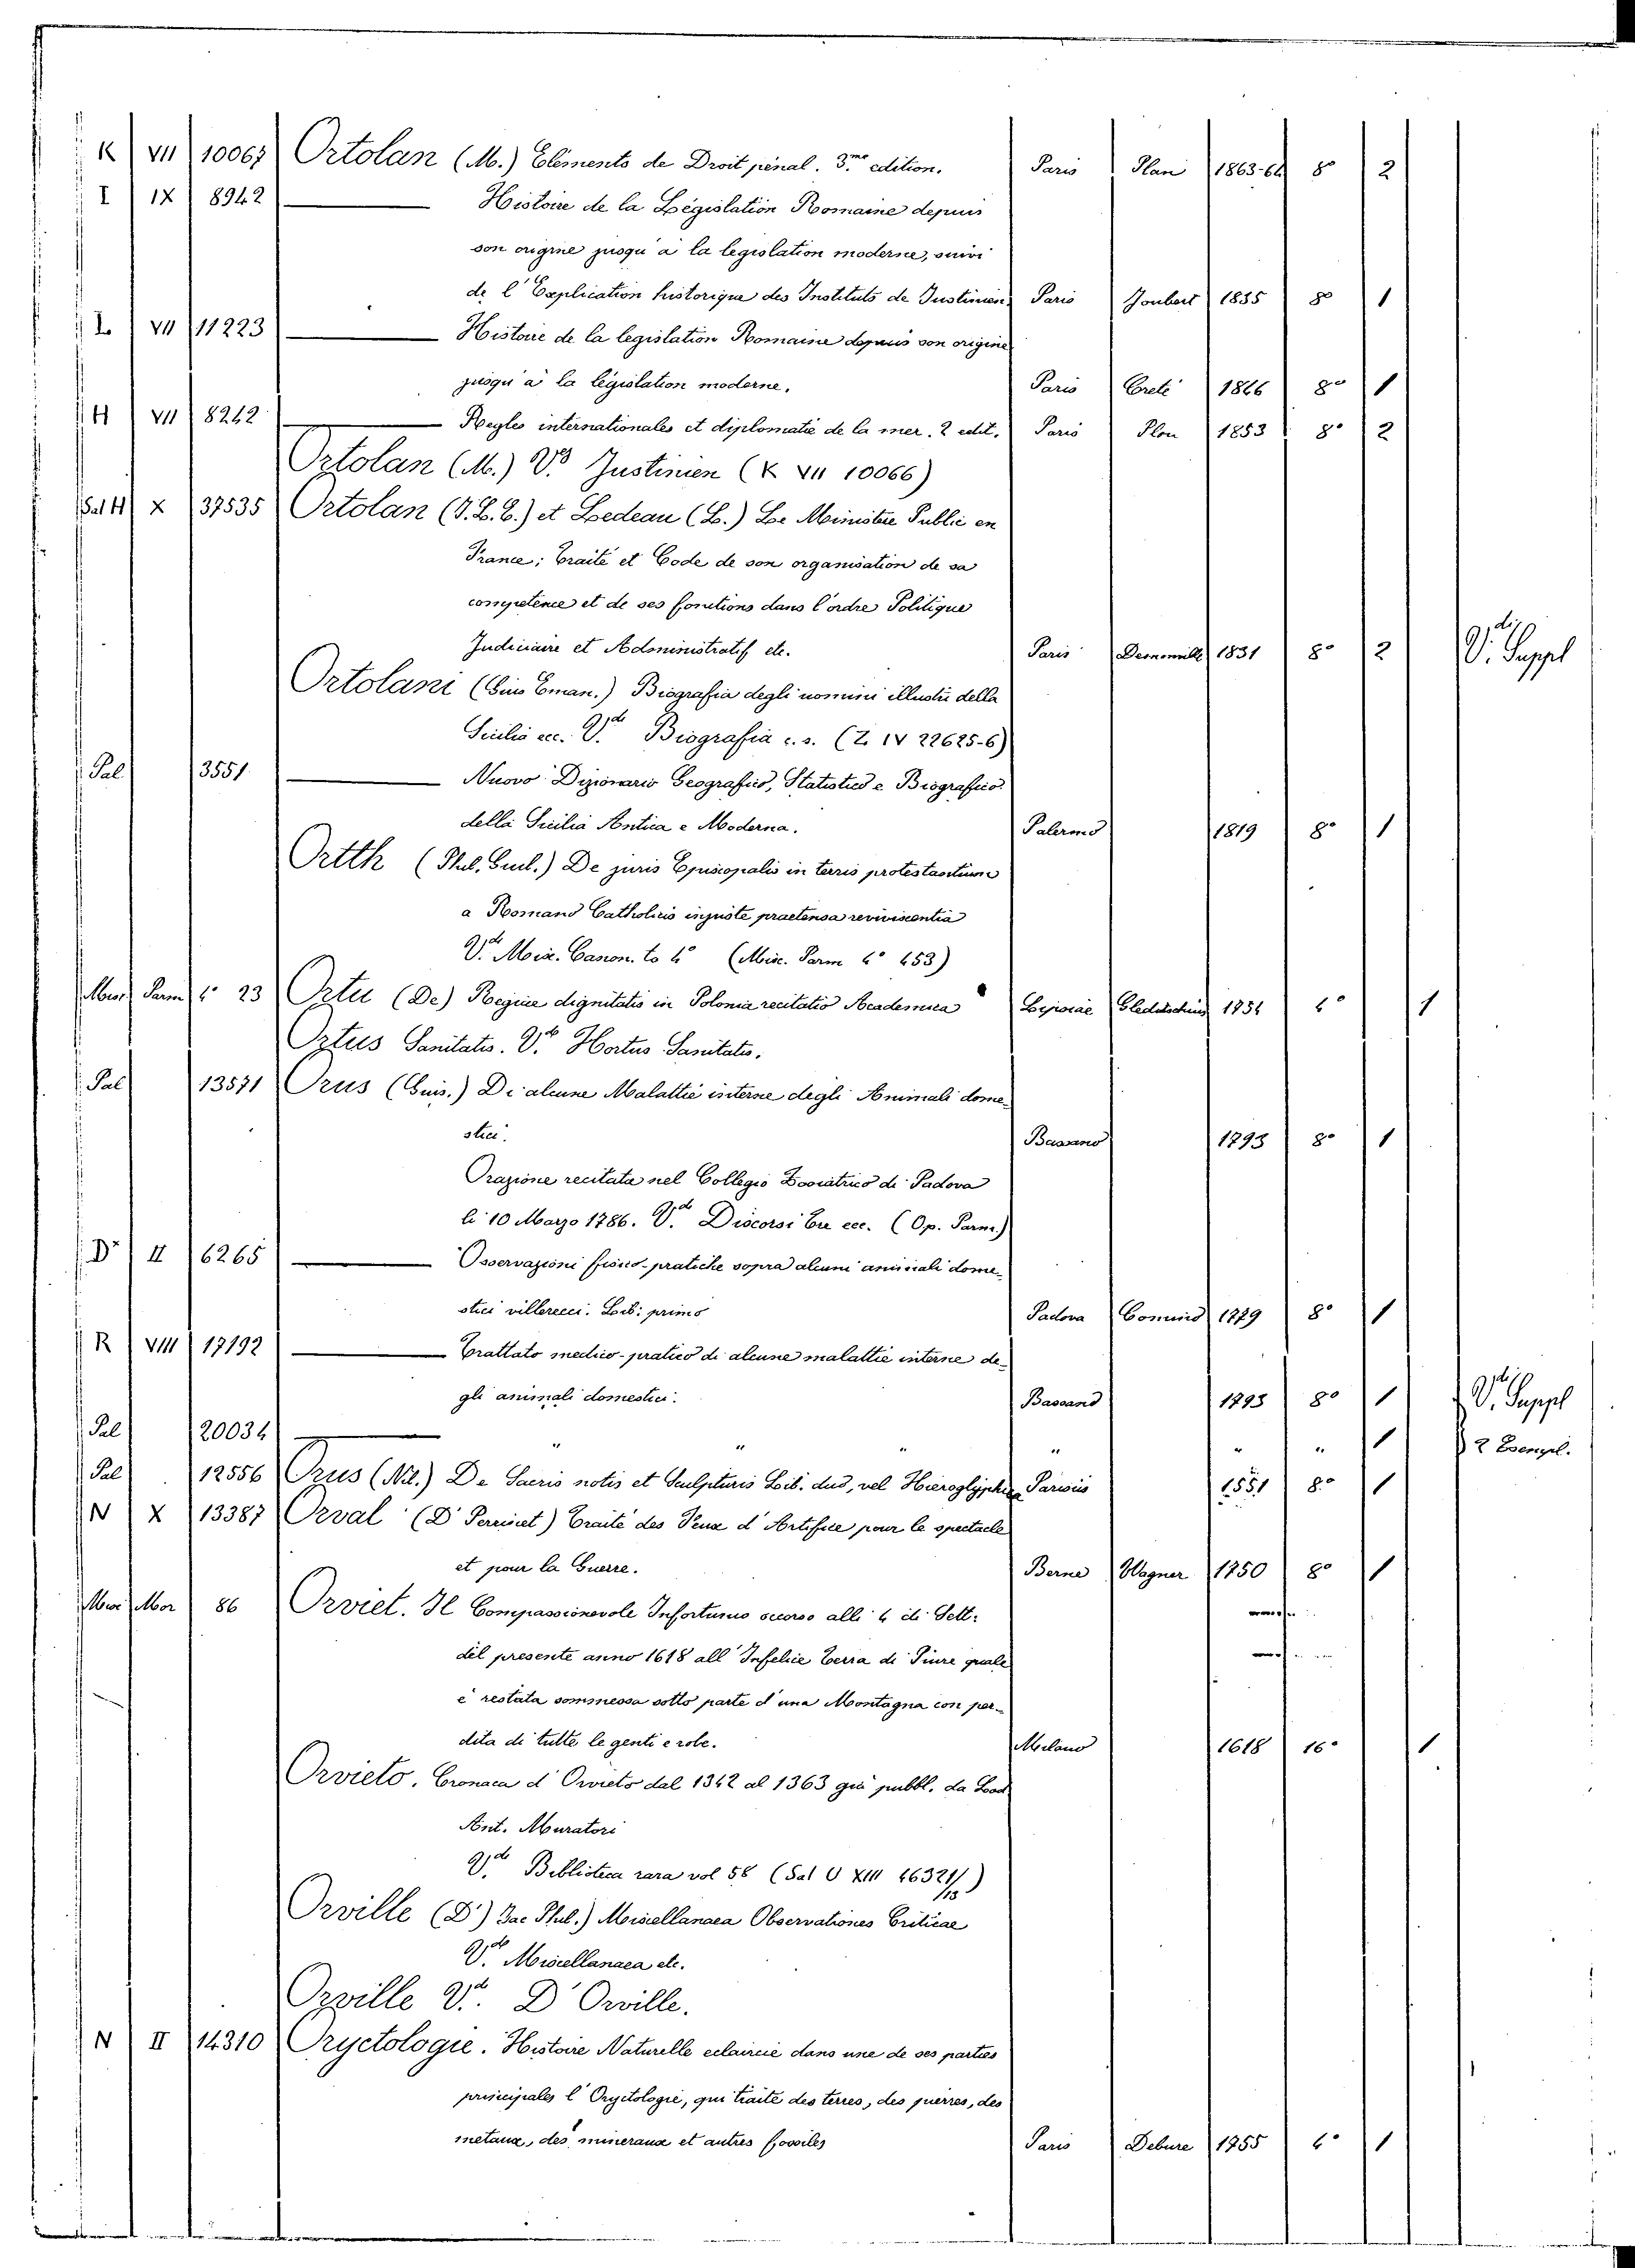 K VII 10067 Ortolan (M.) Eléments de Droit pénal. 3.me edition. Paris Plan 1863-64 8° 2
I IX 8942 Histoire de la Législation Romaine depuis
son origine jusqu'à la legislation moderne, suivi
de l'Explication historique des Instituts de Justinien Paris Joubert 1835 8° 1
L VII 11223 Histoire de la legislation Romaine depuis son origine
jusqu'à la législation moderne. Paris Creté 1846 8° 1
H VII 8242 Regles internationales et diplomatie de la mer. 2 edit. Paris Plon 1853 8° 2
Ortolan (M.) V.d Justinien (K VII 10066)
Sal H X 37535 Ortolan (J. L. E.) et Ledeau (L.) Le Ministère Public en
France; Traité et Code de son organisation de sa
competence et de ses fonctions dans l'ordre Politique
Judiciaire et Administratif etc. Paris 1831 8° 2 V.di Suppl
Ortolani (Gius Eman.) Biografia degli uomini illustri della
Sicilia ecc. V.de Biografia c. s. (Z IV 22625-6)
Pal 3551 Nuovo Dizionario Geografico, Statistico e Biografico
della Sicilia Antica e Moderna. Palermo 1819 8° 1
Ortth (Phil. Guil.) De juris Episcopalis in terris protestantium
a Romano Catholicis injuste praetensa reviviscentia
V.de Mix. Canon. to 4° (Misc. Parm 4° 453)
Misc Parm 4° 23 Ortu (De) Regiae dignitatis in Polonia recitatio Academica Lipsiae 1754 4° 1
Ortus Sanitatis. V.de Hortus Sanitatis.
Pal 13571 Orus (Gius.) Di alcune Malattie interne degli Animali dome-
stici. Bassano 1793 8° 1
Orazione recitata nel Collegio Zooiatrico di Padova
li 10 Marzo 1786. V.de Discorsi Tre ecc. (Op. Parm.)
D" II 6265 Osservazioni fisico-pratiche sopra alcuni animali dome-
stici villerecci. Lib: primo Padova Comino 1779 8° 1
R VIII 17192 Trattato medico-pratico di alcune malattie interne de-
gli animali domestici. Bassano 1793 8° 1 V.di Suppl
Pal 20034 " " " " " " 1 2 Esempl.
Pal 12556 Orus (Nil.) De Sacris notis et Sculpturis Lib. duo, vel Hieroglyphica Parisiis 1551 8° 1
N X 13387 Orval (D' Perrinet) Traité des Feux d'Artifice pour le spectacle
et pour la Guerre. Berne Wagner 1750 8° 1
Misc Mor 86 Orviet. Il Compassionevole Infortunio occorso alli 4 di Sett:
del presente anno 1618 all'Infelice Terra di Piure quale
è restata sommessa sotto parte d'una Montagna con per-
dita di tutte le genti e robe. Milano 1618 16° 1
Orvieto. Cronaca d'Orvieto dal 1342 al 1363 già pubbl. da Lod
Ant. Muratori
V.de Biblioteca rara vol 58 (Sal U XIII 46321/13)
Orville (D') Jac Phil.) Miscellanaea Observationes Criticae
V.de Miscellanaea etc.
Orville V.de D'Orville.
N II 14310 Oryctologie. Histoire Naturelle eclaircie dans une de ses parties
principales l'Oryctologie, qui traite des terres, des pierres, des
metaux, des mineraux et autres fossiles Paris Debure 1755 4° 1